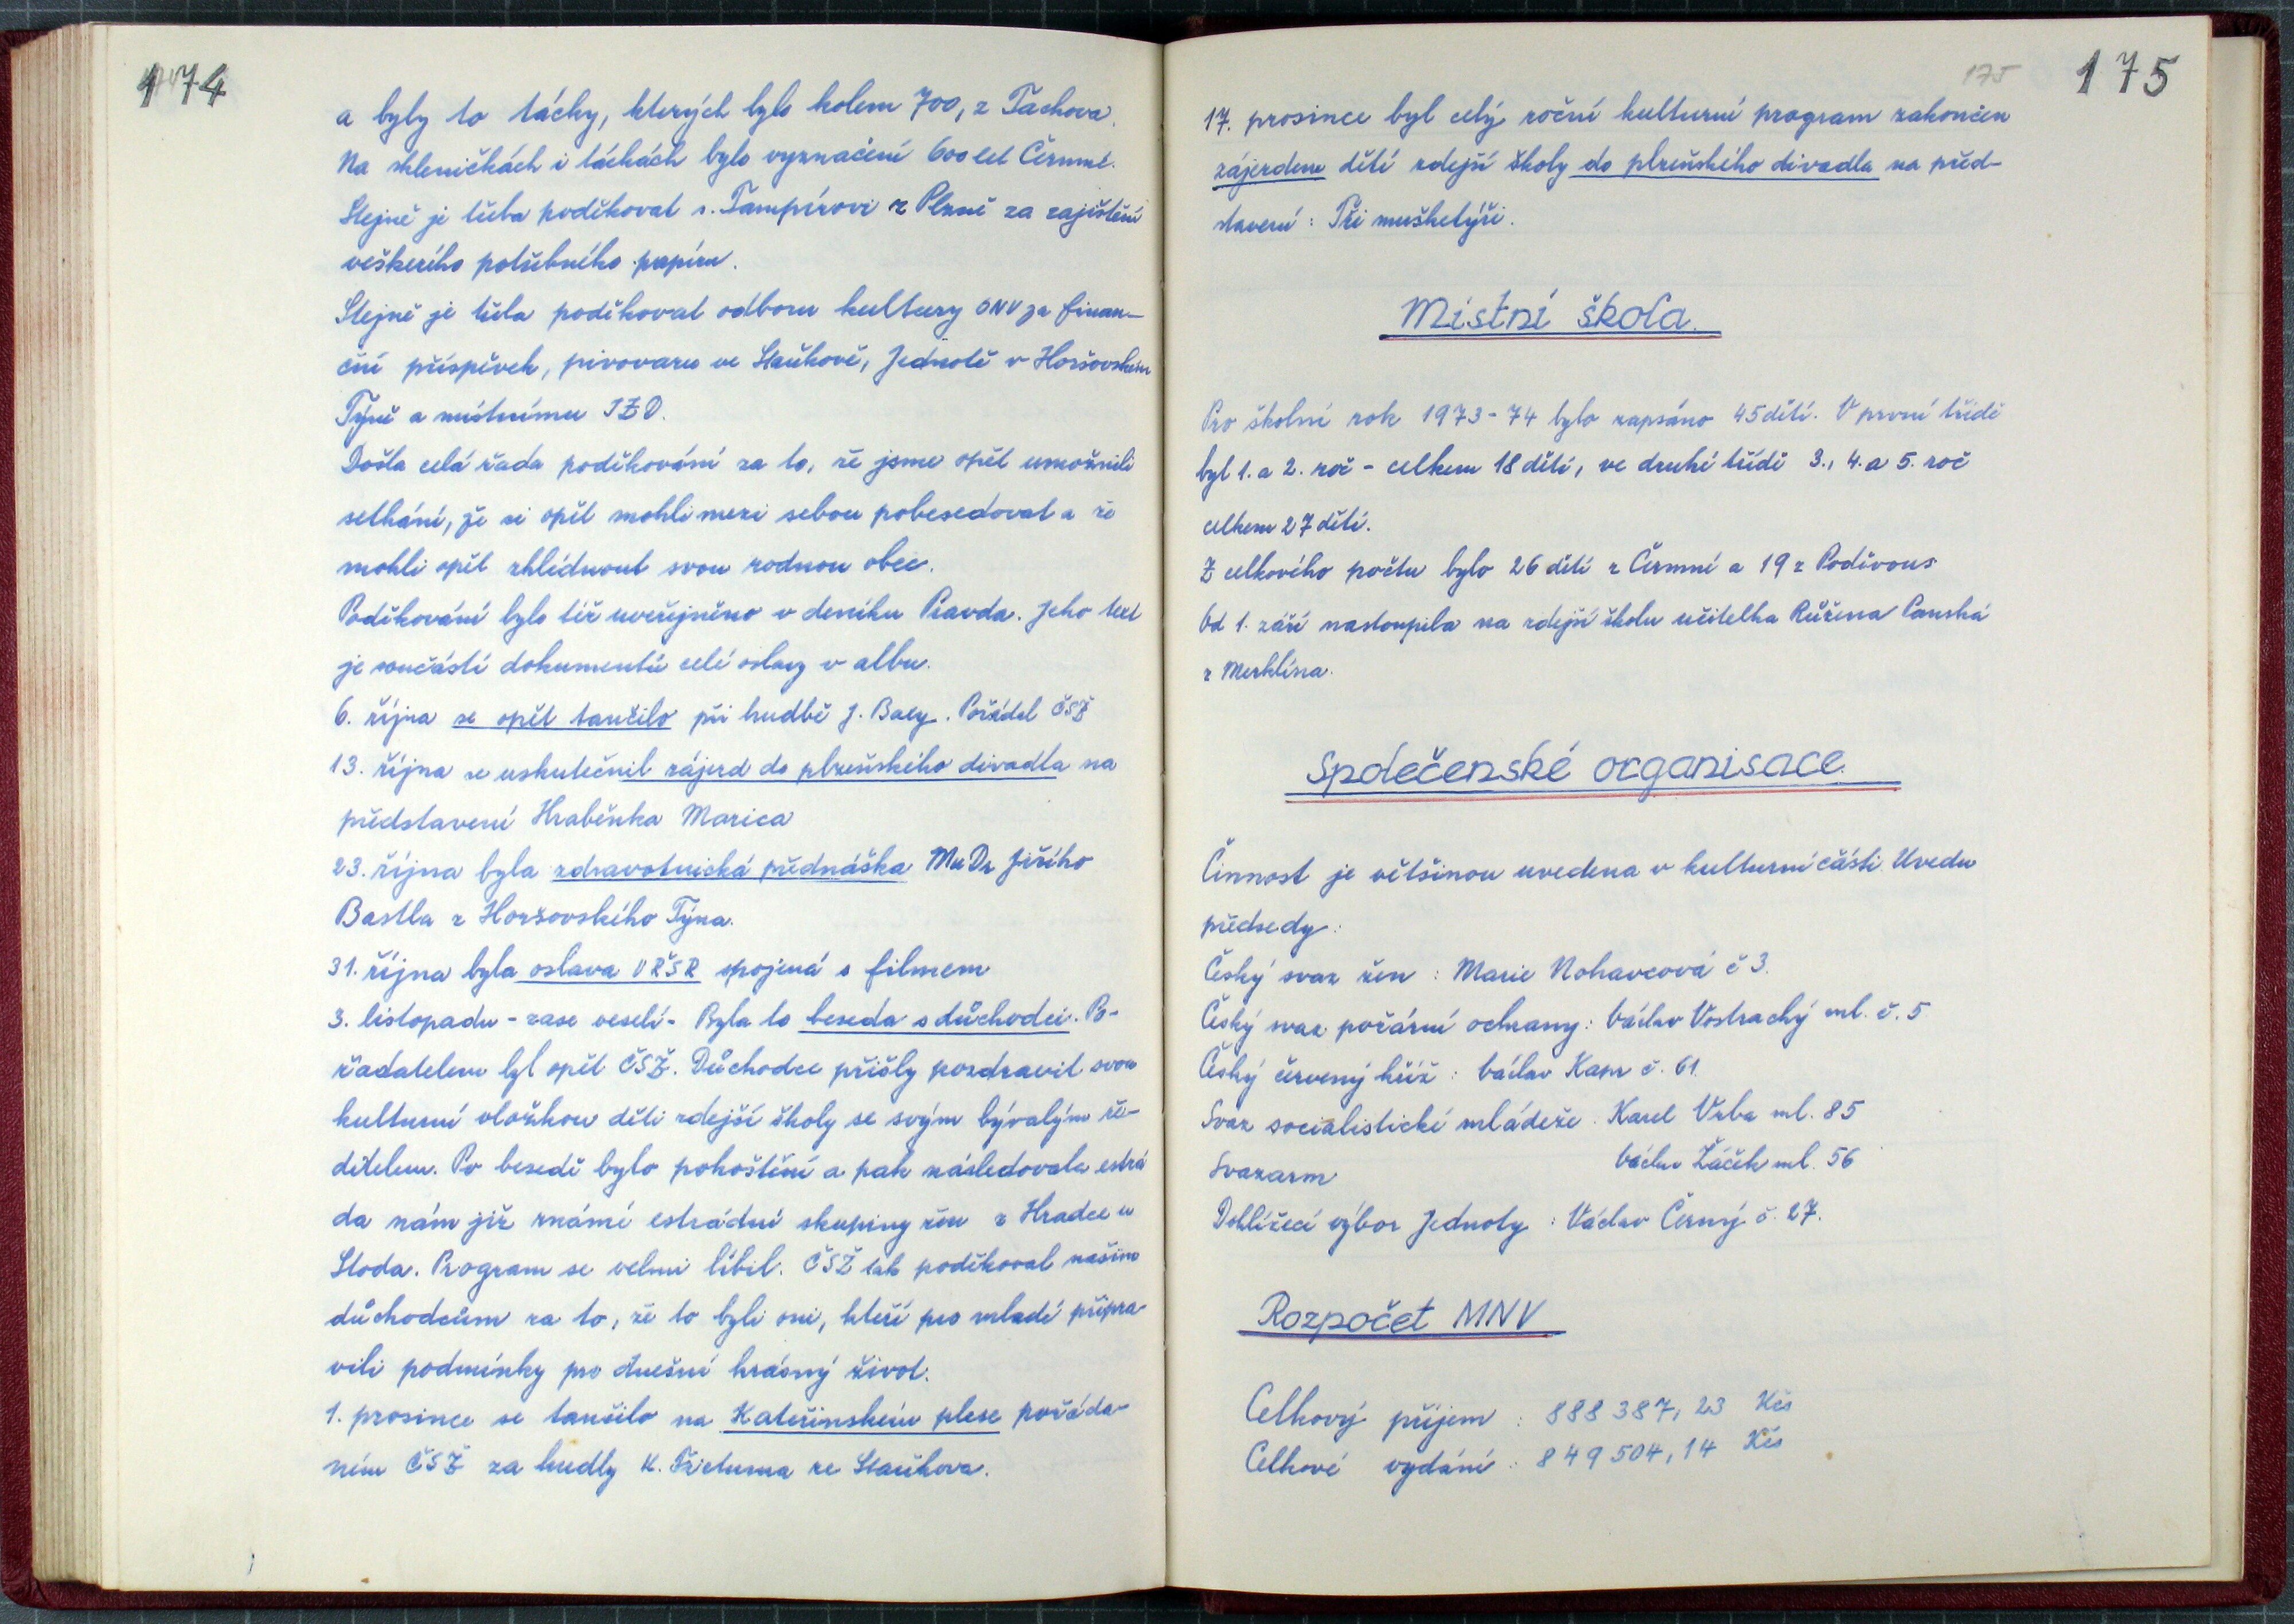 174
a byly to tácky, kterých bylo kolem 700, z Tachova.
Na skleničkách i táckách bylo vyznačení 600 let Čermné.
Stejně je třeba poděkovat s. Tampírovi z Plzně za zajištění
veškerého potřebného papíru.
Stejně je třeba poděkovat odboru kultury ONV za finan-
ční příspěvek, pivovaru ve Staňkově, Jednotě v Horšovském
Týně a místnímu JZD.
Došla celá řada poděkování za to, že jsme opět umožnili
setkání, že si opět mohli mezi sebou pobesedovat a že
mohli opět zhlédnout svou rodnou obec.
Poděkování bylo též uveřejněno v deníku Pravda. Jeho text
je součástí dokumentů celé oslavy v albu.
6. října se opět tančilo při hudbě J. Baly. Pořádal ČSŽ
13. října se uskutečnil zájezd do plzeňského divadla na
představení Hraběnka Marica
23. října byla zdravotnická přednáška MuDr Jiřího
Bastla z Horšovského Týna.
31. října byla oslava VŘSR spojená s filmem
3. listopadu - zase veselí - Byla to beseda s důchodci. Po-
řadatelem byl opět ČSŽ. Důchodce přišly pozdravit svou
kulturní vložkou děti zdejší školy se svým bývalým ře-
ditelem. Po besedě bylo pohoštění a pak následovala estrá
da nám již známé estrádní skupiny žen z Hradce u
Stoda. Program se velmi líbil. ČSŽ tak poděkoval našim
důchodcům za to, že to byli oni, kteří pro mladé připra-
vili podmínky pro dnešní krásný život.
1. prosince se tančilo na Kateřinském plese pořáda-
ném ČSŽ za hudby K. ze Staňkova.
175
175
17. prosince byl celý roční kulturní program zakončen
zájezdem dětí zdejší školy do plzeňského divadla na před-
stavení : Tři mušketýři.
Místní škola.
Pro školní rok 1973-74 bylo zapsáno 45 dětí. V první třídě
byl 1. a 2. roč - celkem 18 dětí, ve druhé třídě 3., 4. a 5. roč
celkem 27 dětí.
Z celkového počtu bylo 26 dětí z Čermné a 19 z Poděvous
Od 1. září nastoupila na zdejší školu učitelka Růžena Panská
z Merklína.
Společenské organisace.
Činnost je většinou uvedena v kulturní části. Uvedu
předsedy :
Český svaz žen : Marie Nohavcová č 3.
Český svaz požární ochrany : Václav Vostrachý ml. č. 5
Český červený kříž : Václav Kapr č. 61.
Svaz socialistické mládeže : Karel Vrba ml. 85
Svazarm Václav Žáček ml. 56
Dohlížecí výbor Jednoty : Václav Černý č. 27.
Rozpočet MNV
Celkový příjem : 888 387,23 Kčs
Celkové vydání : 849 504,14 Kčs